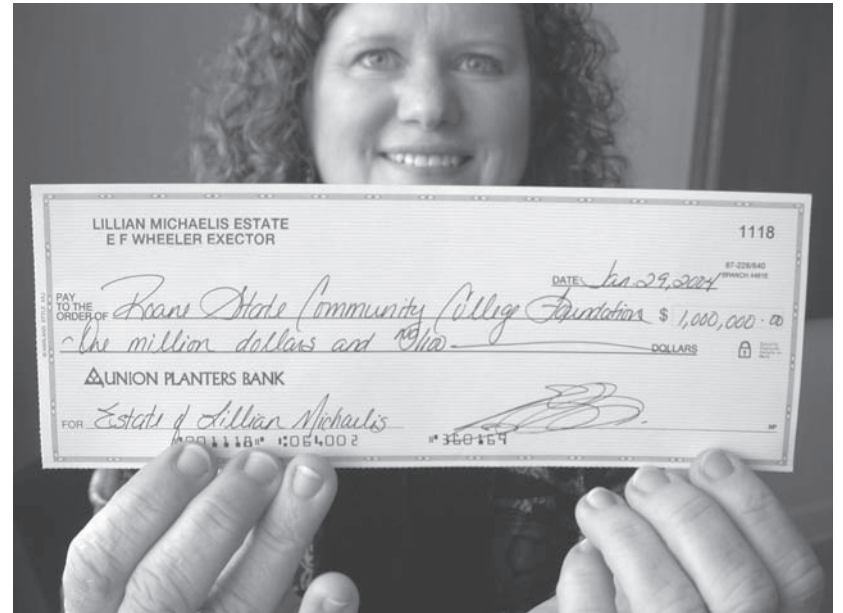 LILLIAN MICHAELIS ESTATE
E F WHEELER EXECTOR
1118
87-226/640
BRANCH
DATE Jan. 29, 2004
PAY TO THE ORDER OF Roane State Community College Foundation $ 1,000,000.00
One million dollars and no/100 DOLLARS
UNION PLANTERS BANK
FOR Estate of Lillian Michaelis
MP